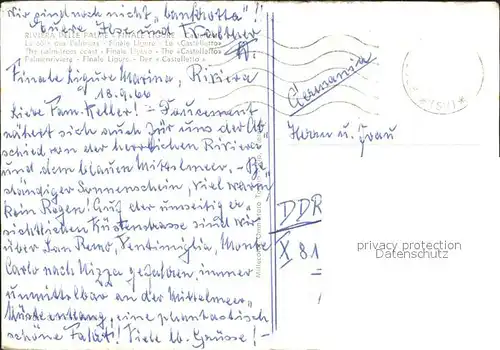 Wir sind noch nicht „bankrotta"!!
Euere Ilse und Walther
RIVIERA DELLE PALME - FINALE LIGURE
La côte des Palmiers - Finale Ligure - Le «Castelletto»
The palmtrees coast - Finale Ligure - The «Castelletto»
Palmenriviera - Finale Ligure - Der «Castelletto»
Finale Ligure Marina, Riviera
18.9.60
Liebe Fam. Keller! = Tausement
nähert sich auch für uns der Ab=
schied von der herrlichen Riviera
und dem blauen Mittelmeer. - Be=
ständiger Sonnenschein, viel warm,
kein Regen! Auf der umseitig er=
sichtlichen Küstenstrasse sind wir
über San Remo, Ventimiglia, Monte
Carlo nach Nizza gefahren, immer
unmittelbar an der Mittelmeer
Küste entlang, eine phantastisch
schöne Fahrt! Viele lb. Grüsse! -
Germania
Herrn u. Frau
DDR
X 81
privacy protection
Datenschutz